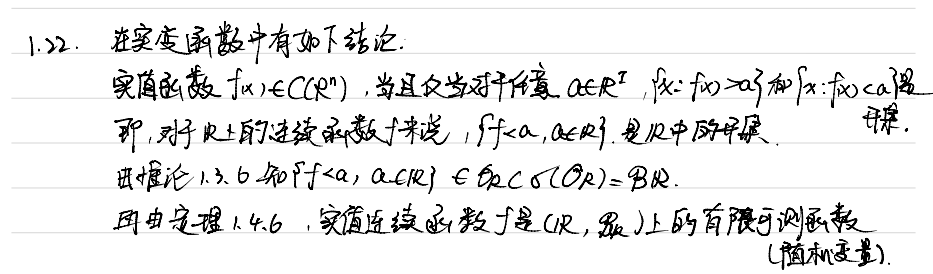 1.22. 在实变函数中有如下结论:
实值函数 f(x)∈C(Rⁿ),当且仅当对于任意 a∈R¹,{x:f(x)>a}和{x:f(x)<a}是
开集.
即,对于R上的连续函数f来说,{f<a,a∈R}.是R中的开集.
由推论1.3.6知{f<a,a∈R}∈O_R⊂σ(O_R)=B_R.
再由定理1.4.6,实值连续函数f是(R,B_R)上的有限可测函数
(随机变量).